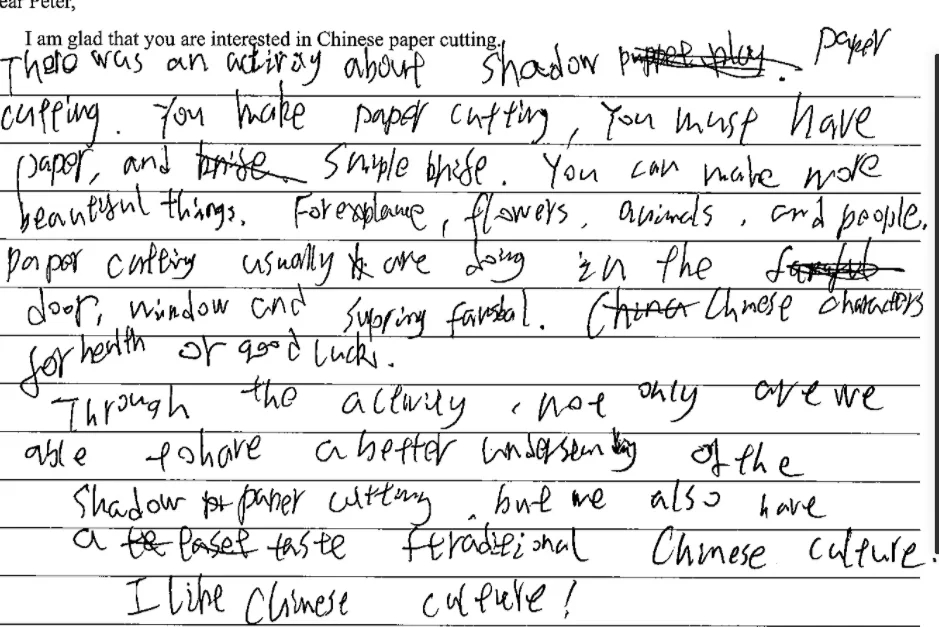 ear Peter,
I am glad that you are interested in Chinese paper cutting.
There was an activity about shadow puppet play. paper
cutting. You make paper cutting, You must have
paper, and knife simple knife. You can make more
beautiful things. For explame, flowers, animals, and people.
paper cutting usually are doing in the
door, window and supring farsbal. China Chinese characters
for health or good luck.
Through the activity, not only are we
able to have a better undersending of the
shadow paper cutting, but we also have
a taste ftraditional Chinese culture.
I like Chinese culture!